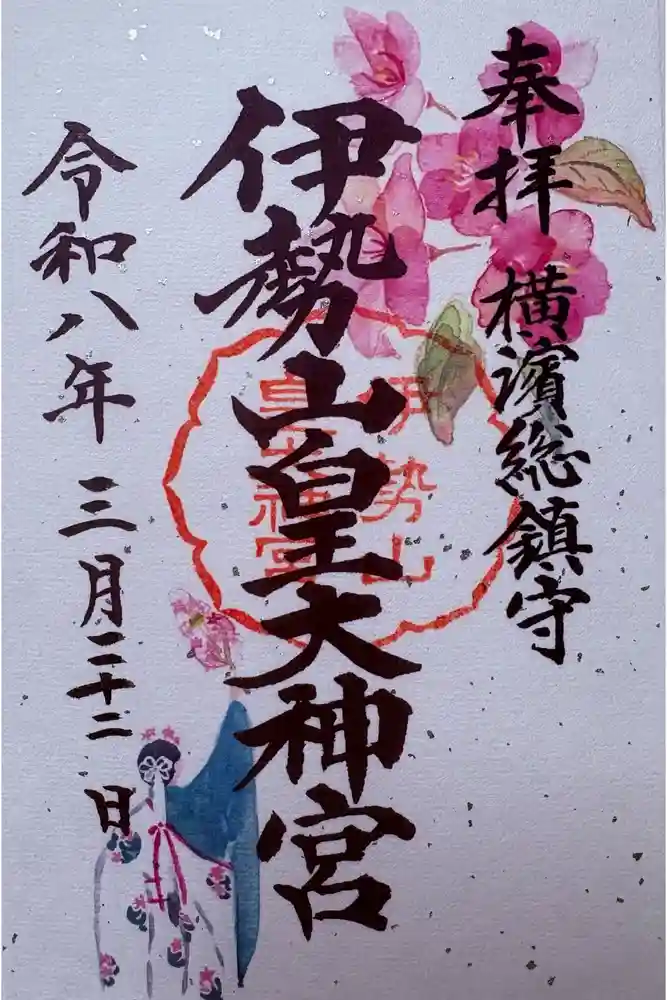 奉拝 横濱総鎮守
伊勢山皇大神宮
伊勢山
皇大神宮
令和八年 三月二十二日